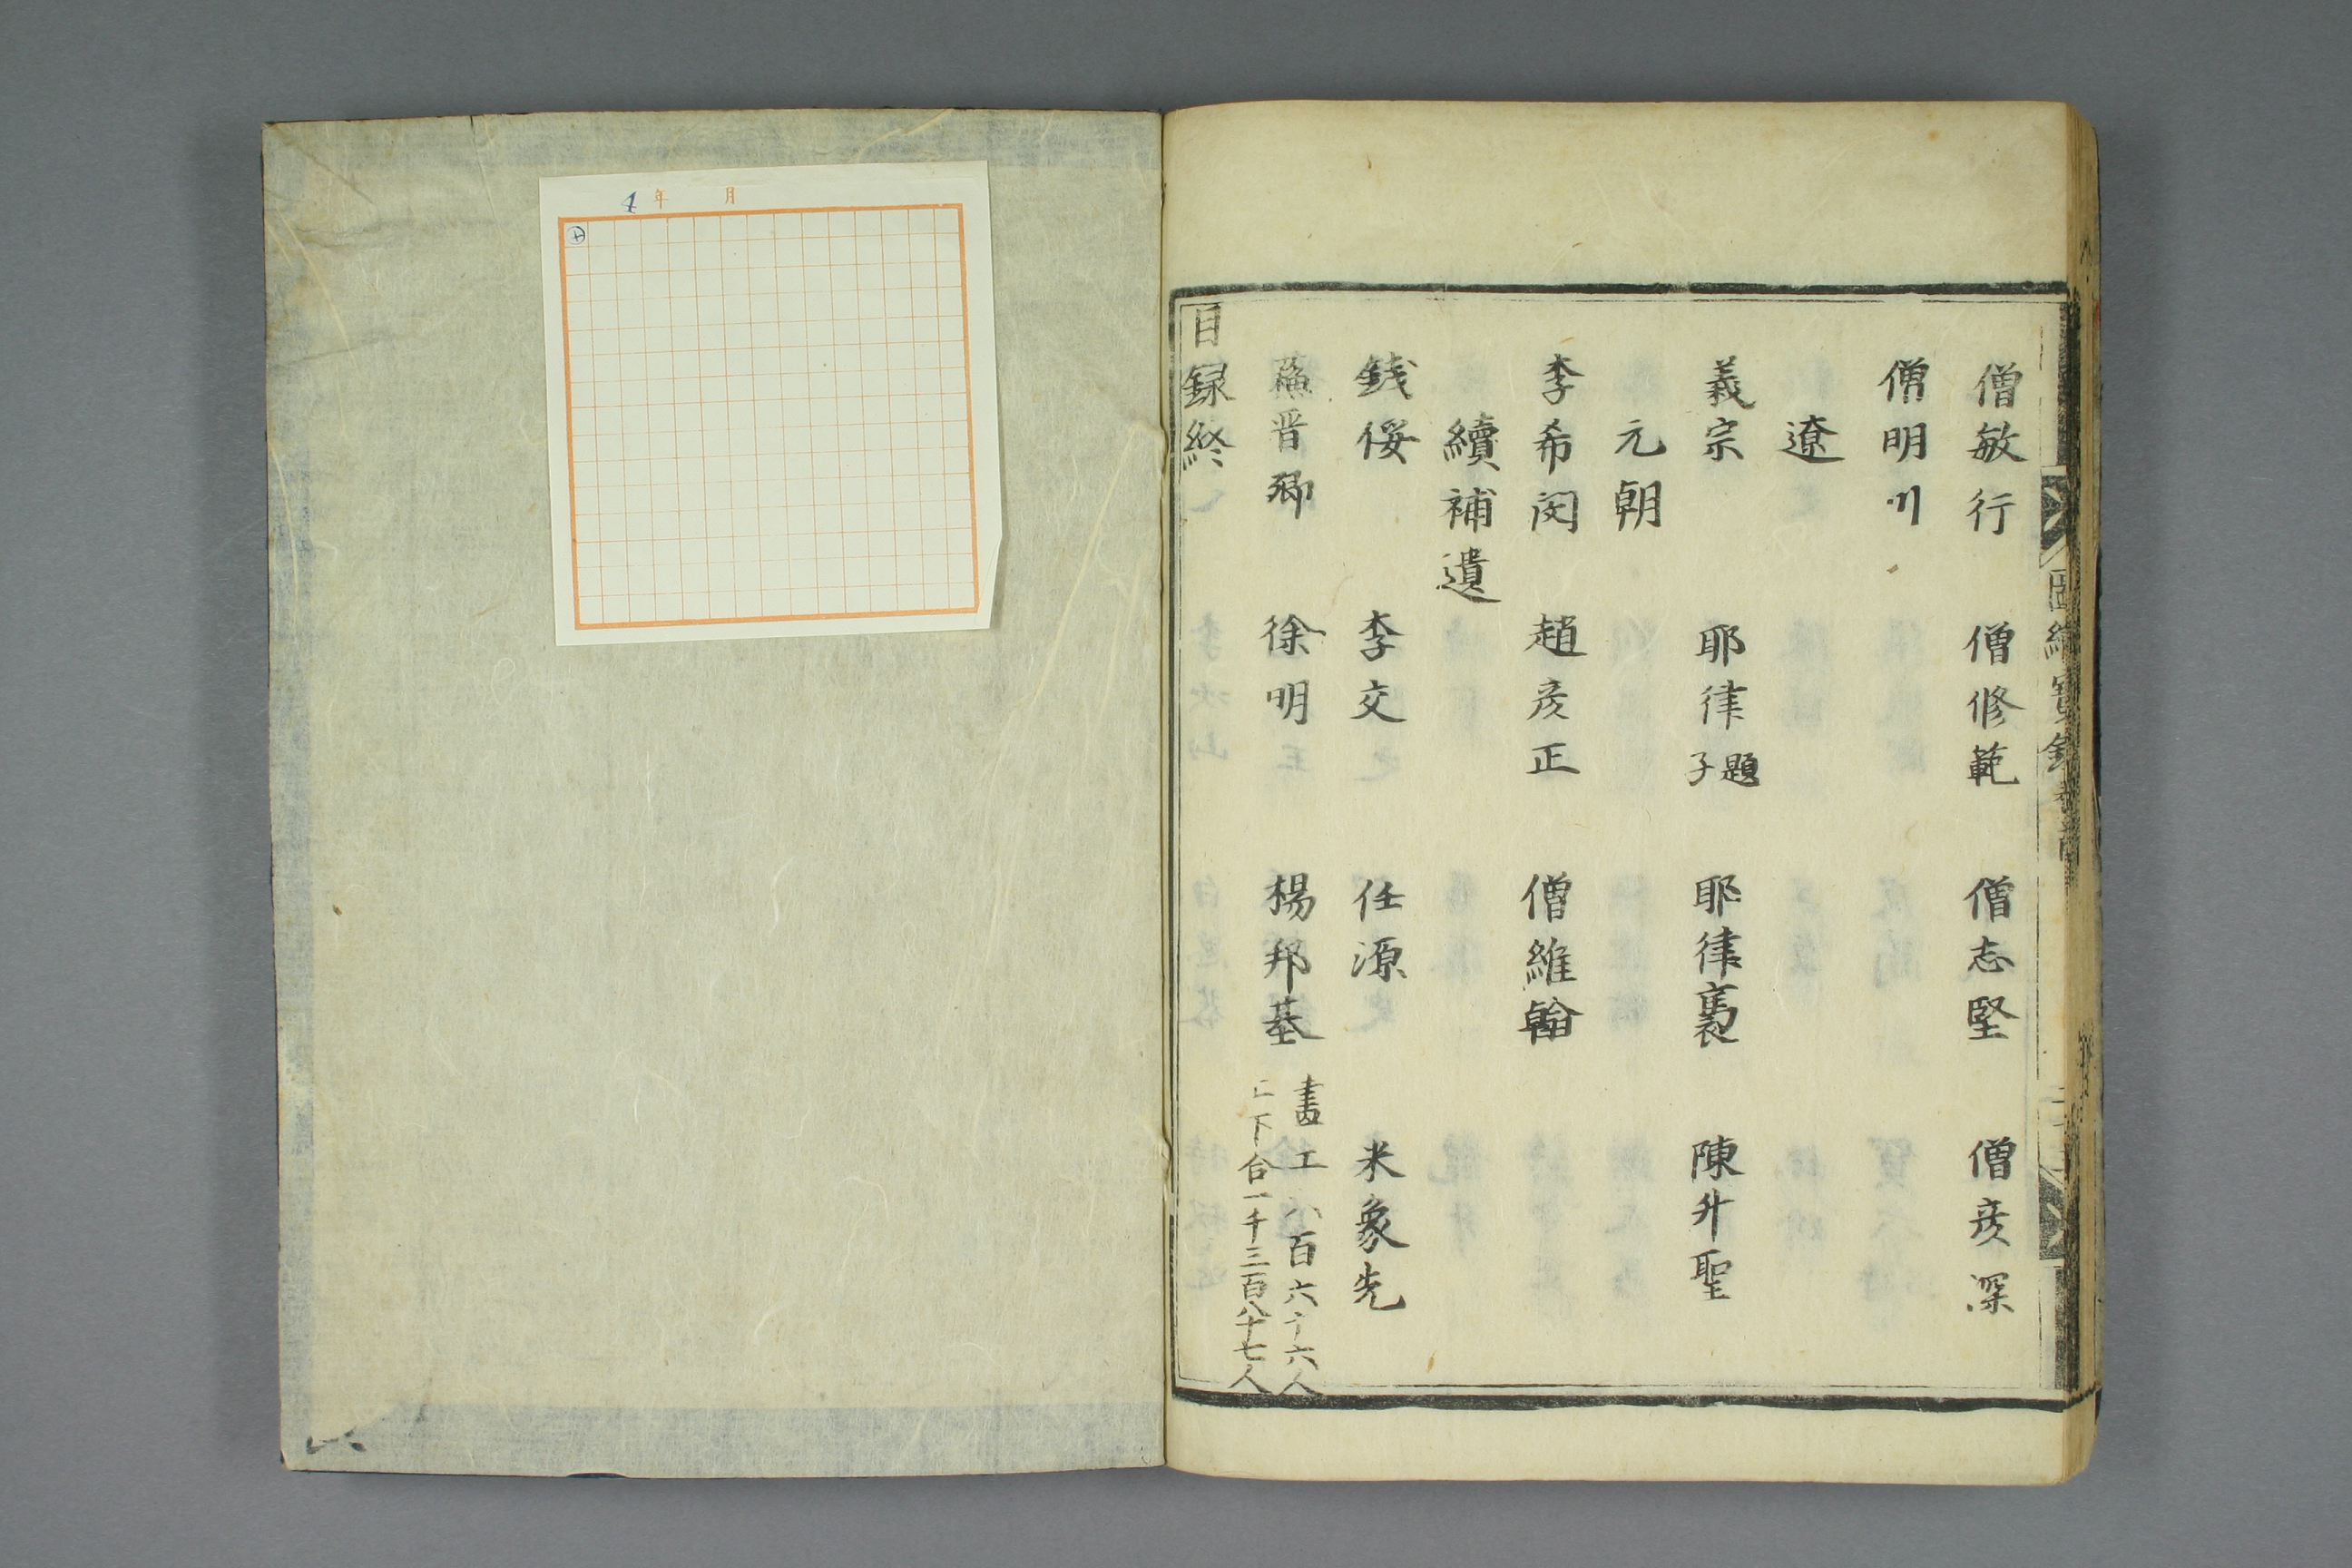 僧敏行 僧修範 僧志堅 僧彦深
僧明川
遼
義宗 耶律題子 耶律褭 陳升聖
元朝
李希閔 趙彦正 僧維翰
續補遺
銭佞 李交 任源 米象先
晋卿 徐明 楊邦基 畫工八百六十六人
上下合一千三百八十七人
目録終
圖繪寳鑑
年 月